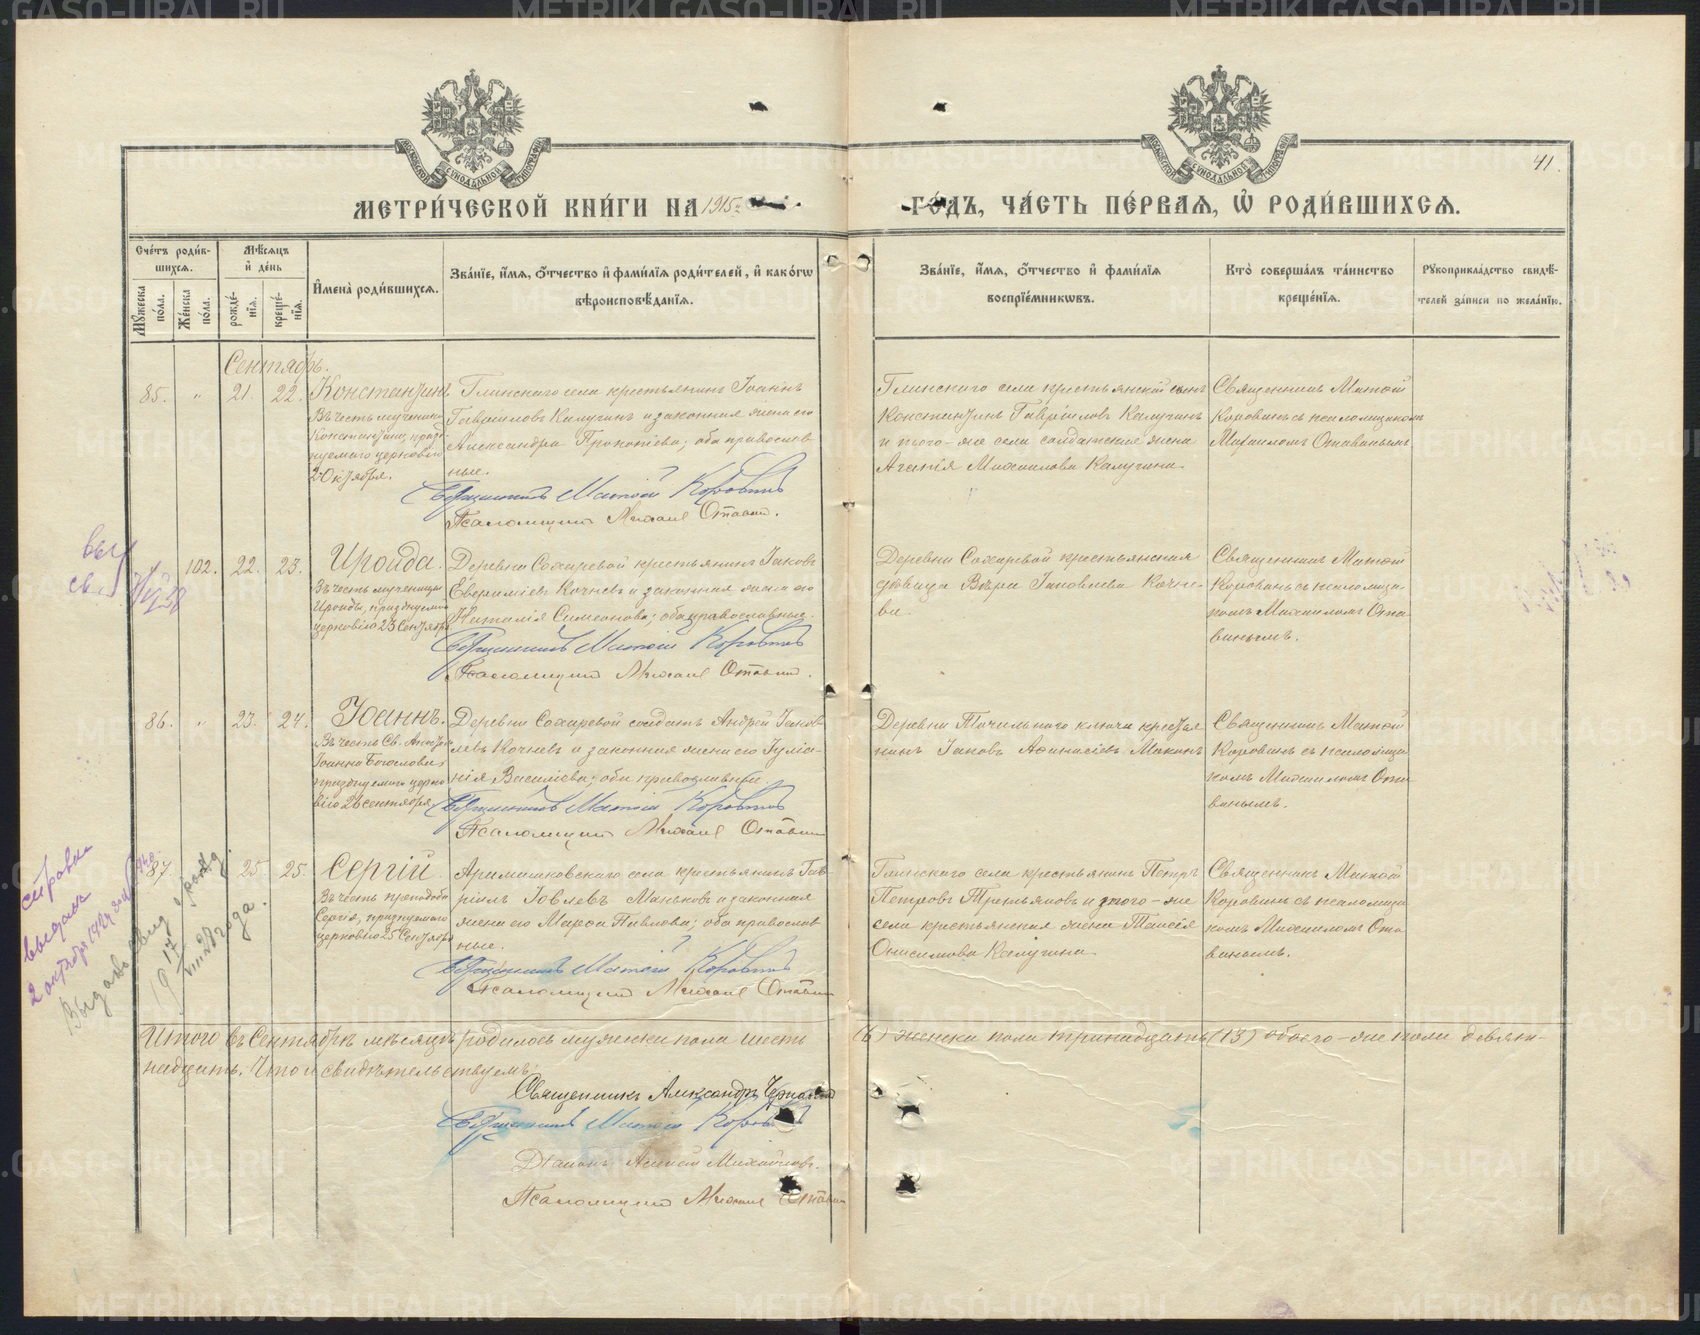 МЕТРИ́ЧЕСКОЙ КНИ́ГИ НА 1915й
ГО́ДЪ, ЧА́СТЬ ПЕ́РВАѦ, Ѡ҆ РОДИ́ВШИХСѦ.
41.
Сче́тъ роди́в-
шихсѧ.
Мѣ́сѧцъ
и҆ де́нь
Мꙋ́жеска по́ла.
Же́нска по́ла.
рожде́-
нїѧ.
креще́-
нїѧ.
И҆мена̀ роди́вшихсѧ.
Зва́нїе, и҆́мѧ, ѻ҆́тчество и҆ фами́лїѧ роди́телей, и҆ како́гѡ
вѣроисповѣ́данїѧ.
Зва́нїе, и҆́мѧ, ѻ҆́тчество и҆ фами́лїѧ
воспрїе́мникѡвъ.
Кто̀ соверша́лъ та́инство
креще́нїѧ.
Рꙋкоприкла́дство свидѣ́-
телей за́писи по жела́нїю.
Сентябрь.
85. " 21. 22. Константинъ
Въ честь мученика
Константина, празд-
нуемаго церковію
2 Октября.
Глинскаго села крестьянинъ Іоаннъ
Гавриловъ Калугинъ и законная жена его
Александра Прокопіева; оба православ-
ные.
Священникъ Матѳій Коровинъ
Псаломщикъ Михаилъ
Глинскаго села крестьянскій сынъ
Константинъ Гавріиловъ Калугинъ
и того-же села солдатская жена
Агапія Михаилова Калугина.
Священникъ Матѳій
Коровинъ съ псаломщикомъ
Михаиломъ
102. 22. 23. Ираида.
Въ честь мученицы
Ираиды, празднуемой
церковію 23 Сентября
Деревни Сохаревой крестьянинъ Іаковъ
Кочневъ и законная жена его
Наталія Симеонова; оба православные.
Священникъ Матѳій Коровинъ
Псаломщикъ Михаилъ
Деревни Сохаревой крестьянская
дѣвица Вѣра Іаковлева Кочне-
ва.
Священникъ Матѳій
Коровинъ съ псаломщи-
комъ Михаиломъ
86. " 23. 24. Іоаннъ.
Въ честь Св. Апостола
Іоанна Богослова,
празднуемаго церко-
вію 26 сентября.
Деревни Сохаревой солдатъ Андрей Іаков-
левъ Кочневъ и законная жена его Іуліа-
нія Василіева; оба православные.
Священникъ Матѳій Коровинъ
Псаломщикъ Михаилъ
Деревни Точильнаго ключа крестья-
нинъ Іаковъ Аѳанасіевъ Макинъ
Священникъ Матѳій
Коровинъ съ псаломщи-
комъ Михаиломъ
87. 25 25. Сергій.
Въ честь преподобн.
Сергія, празднуемаго
церковію 25 Сентября
села крестьянинъ Гав-
ріилъ Іовлевъ Маньковъ и законная
жена его Марѳа Павлова; оба православ-
ные.
Священникъ Матѳій Коровинъ
Псаломщикъ Михаилъ
Глинскаго села крестьянинъ Петръ
Петровъ Третьяковъ и того-же
села крестьянская жена Таисія
Онисимова Калугина.
Священникъ Матѳій
Коровинъ съ псаломщи-
комъ Михаиломъ
справка
выдана
2 октября
Итого въ Сентябрѣ мѣсяцѣ родилось мужеска пола шесть (6) женска пола тринадцать (13) обоего-же пола девят-
надцать. Что и свидѣтельствуемъ:
Священникъ Александръ
Священникъ Матѳій Коровинъ
Діаконъ Алексій Михайловъ.
Псаломщикъ Михаилъ
METRIKI.GASO-URAL.RU